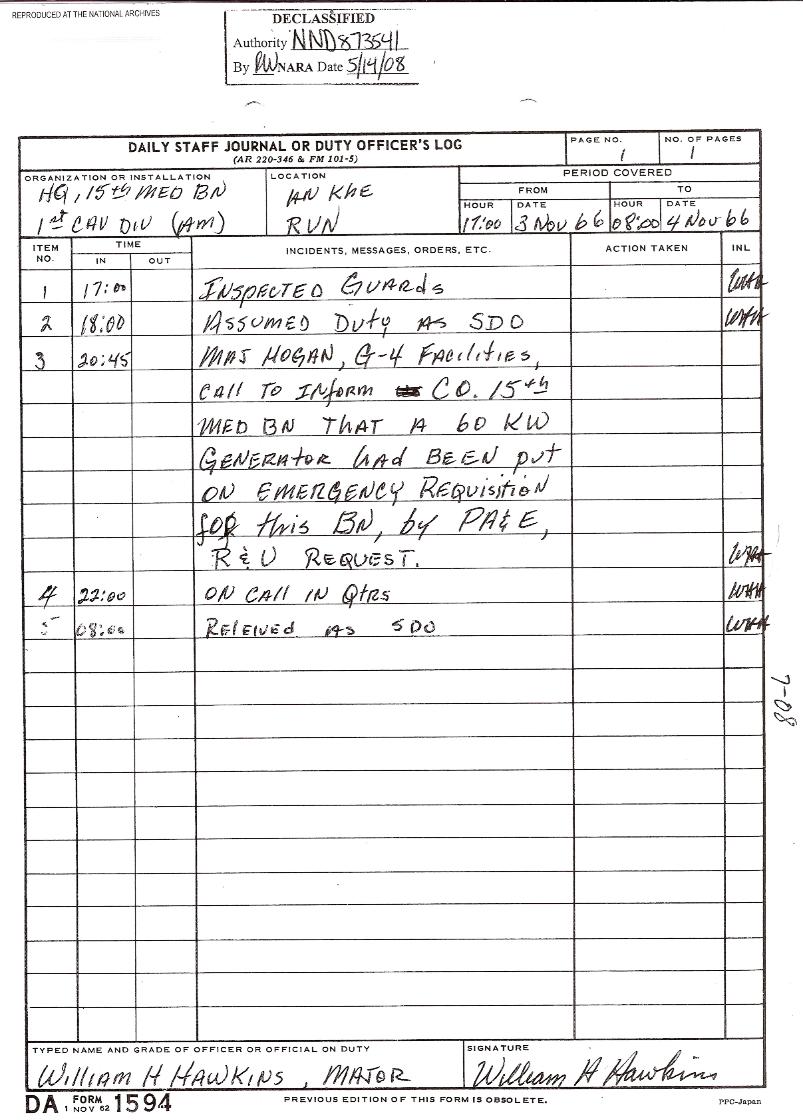 REPRODUCED AT THE NATIONAL ARCHIVES
DECLASSIFIED
Authority NND873541
By RW NARA Date 5/14/08
DAILY STAFF JOURNAL OR DUTY OFFICER'S LOG
(AR 220-346 & FM 101-5)
PAGE NO.
1
NO. OF PAGES
1
ORGANIZATION OR INSTALLATION
HQ, 15th MED BN
1st CAV DIV (AM)
LOCATION
AN KHE
RVN
PERIOD COVERED
FROM
TO
HOUR
DATE
HOUR
DATE
17:00
3 NOV 66
08:00
4 NOV 66
ITEM NO.
TIME
IN
OUT
INCIDENTS, MESSAGES, ORDERS, ETC.
ACTION TAKEN
INL
1 17:00 INSPECTED GUARDS WHH
2 18:00 ASSUMED DUTY AS SDO WHH
3 20:45 MAJ HOGAN, G-4 FACILITIES,
CALL TO INFORM CO. 15th
MED BN THAT A 60 KW
GENERATOR HAD BEEN PUT
ON EMERGENCY REQUISITION
FOR this BN, by PA&E,
R & U REQUEST. WHH
4 22:00 ON CALL IN QTRS WHH
5 08:00 RELEIVED AS SDO WHH
7-08
TYPED NAME AND GRADE OF OFFICER OR OFFICIAL ON DUTY
WILLIAM H HAWKINS, MAJOR
SIGNATURE
William H Hawkins
DA FORM 1594
1 NOV 62
PREVIOUS EDITION OF THIS FORM IS OBSOLETE.
PPC-Japan